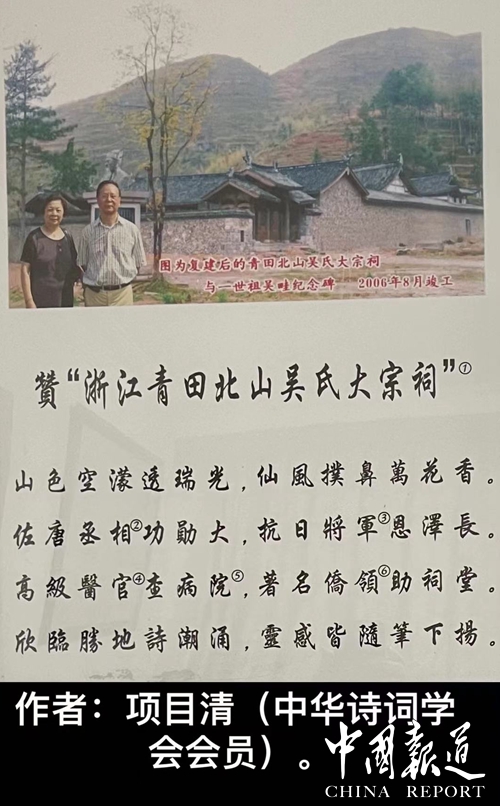 图为复建后的青田北山吴氏大宗祠
与一世祖吴畦纪念碑 2006年8月竣工
贊“浙江青田北山吴氏大宗祠”①
山色空濛透瑞光，仙風撲鼻萬花香。
佐唐丞相②功勛大，抗日將軍③恩澤長。
高級醫官④查病院⑤，著名僑領⑥助祠堂。
欣臨勝地詩潮涌，靈感皆隨筆下揚。
作者：项目清（中华诗词学
会会员）。
中國報道
CHINA REPORT